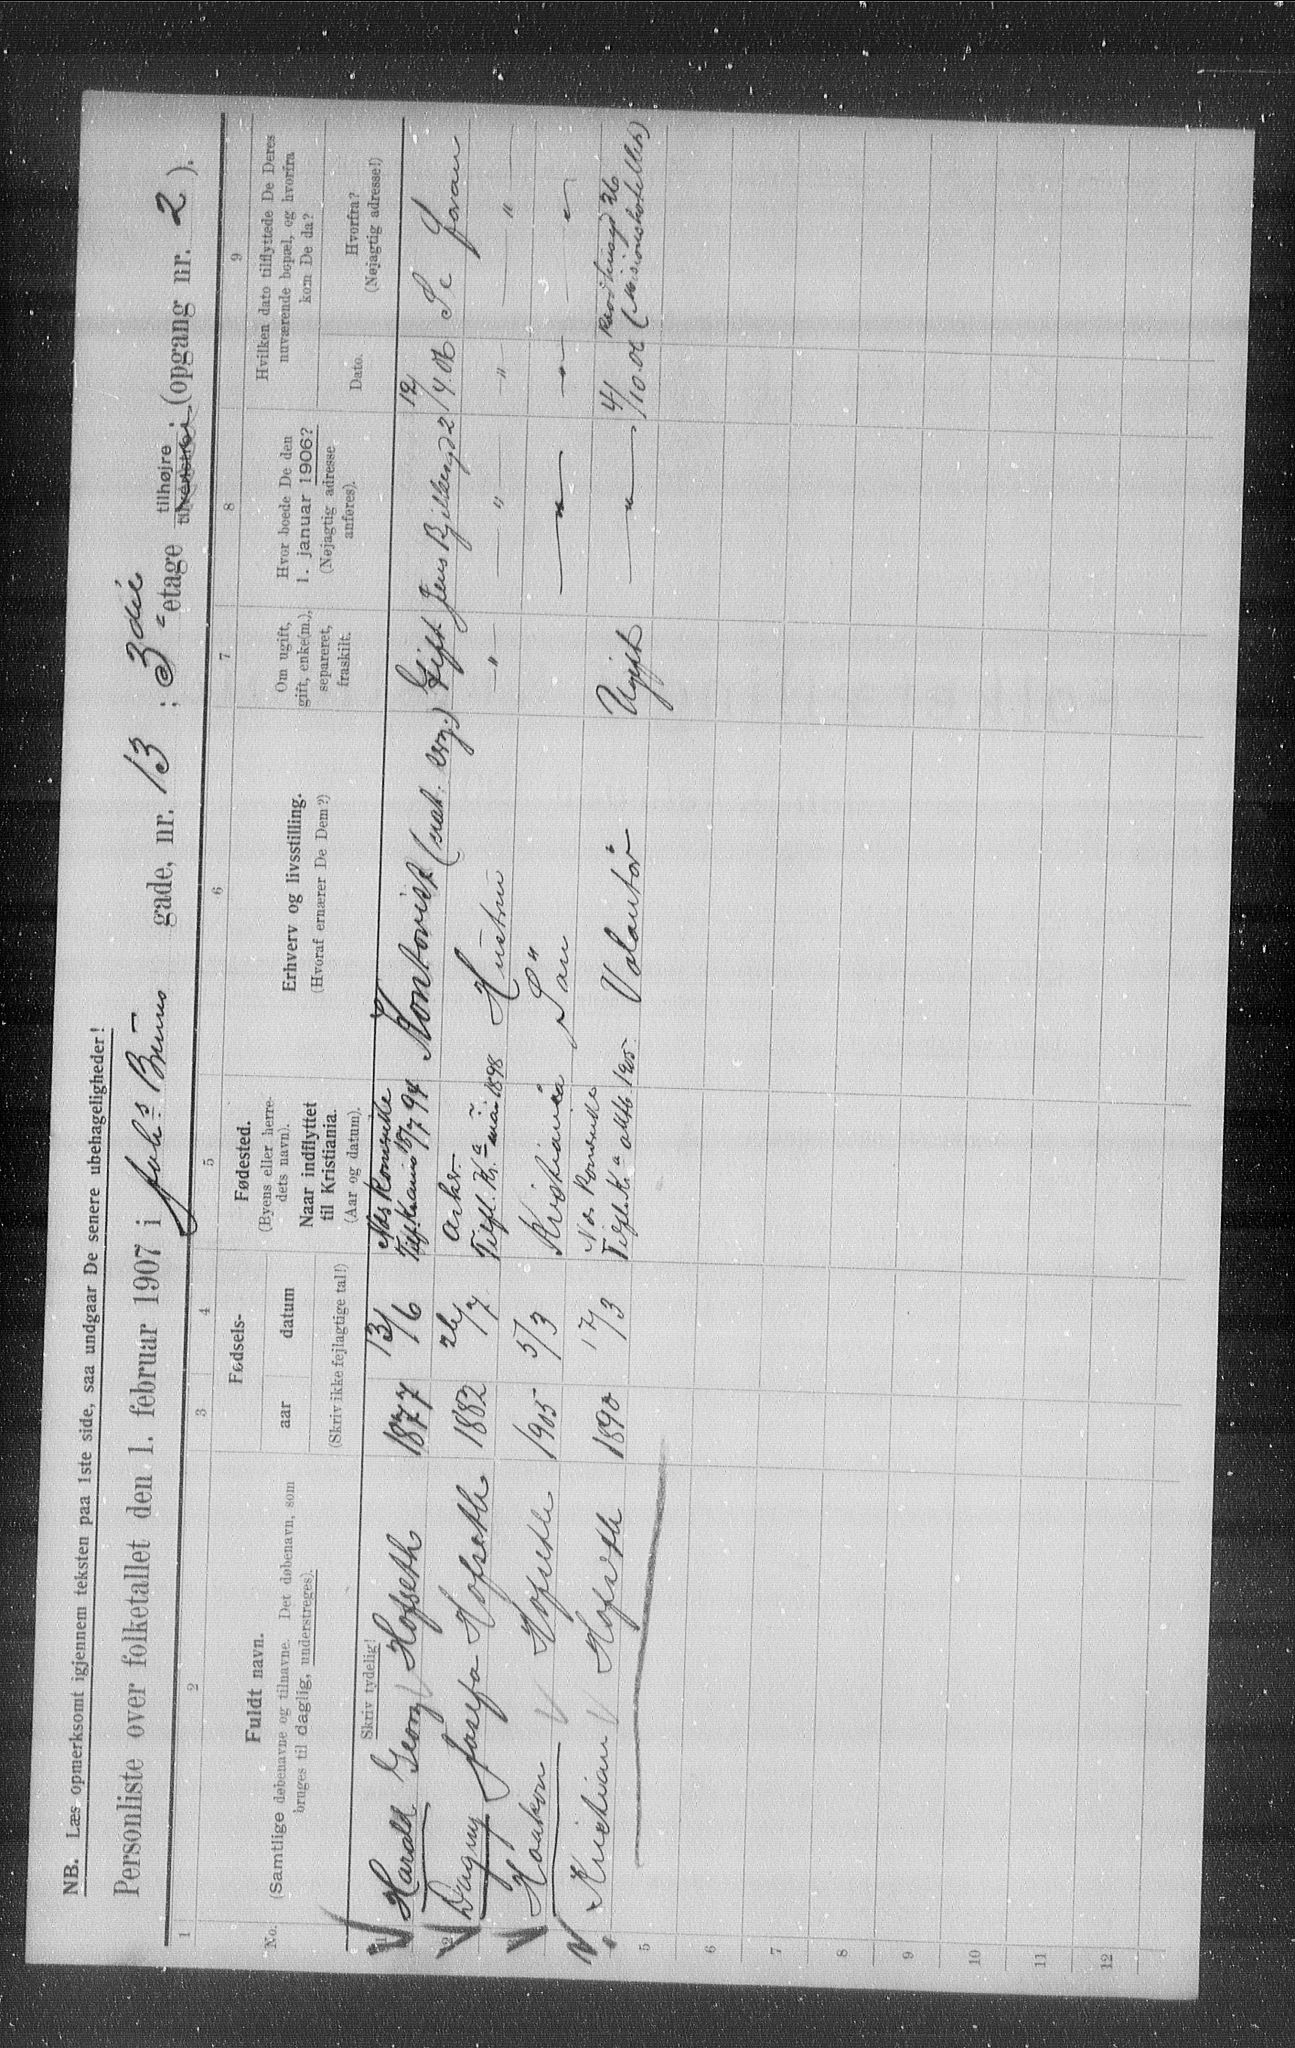 NB. Læs opmerksomt igjennem teksten paa 1ste side, saa undgaar De senere ubehageligheder!
Personliste over folketallet den 1. februar 1907 i Johs Bruns gade, nr. 13 ; 3die etage tilhøjre tilvenstre (opgang nr. 2 ).
1 2 3 4 5 6 7 8 9
No. Fuldt navn.
(Samtlige døbenavne og tilnavne. Det døbenavn, som
bruges til daglig, understreges).
Skriv tydelig!
Fødsels-
aar datum
(Skriv ikke fejlagtige tal!)
Fødested.
(Byens eller herre-
dets navn).
Naar indflyttet
til Kristiania.
(Aar og datum).
Erhverv og livsstilling.
(Hvoraf ernærer De Dem?)
Om ugift,
gift, enke(m.),
separeret,
fraskilt.
Hvor boede De den
1. januar 1906?
(Nøjagtig adresse
anføres).
Hvilken dato tilflyttede De Deres
nuværende bopæl, og hvorfra
kom De da?
Dato. Hvorfra?
(Nøjagtig adresse!)
1 Harald Georg Hofseth 1877 13/6 Næs Romerike 15/7 94 Kontorist Gift Jens Bjelkesgd 2 12/4.06 Se foran
2 Dagny Josefa Hofseth 1882 26/7 Aker Tilfl. Kr.a mai 1898 Hustru " " " "
3 Haakon Hofseth 1905 5/3 Kristiania Søn " " "
Kristian Hofseth 1890 17/3 Næs Romerike Tilfl. Kr.a oktb 1905. Volontør Ugift " 4/10.06 26 (Missionshotellet)
5
6
7
8
9
10
11
12